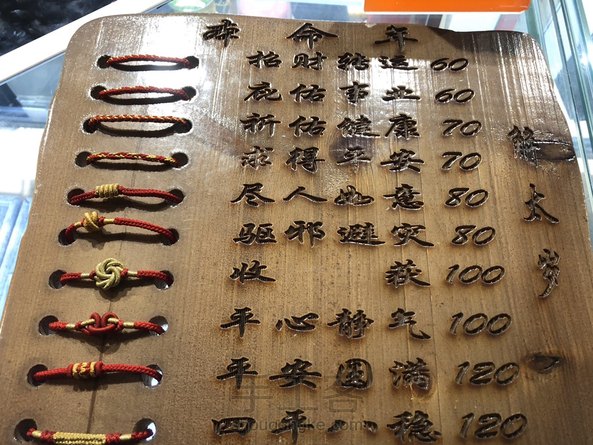 本命年
招财转运 60
庇佑事业 60
祈佑健康 70
求得平安 70
尽人如意 80
驱邪避灾 80
收获 100
平心静气 100
平安圆满 120
四平八稳 120
太岁
手工客